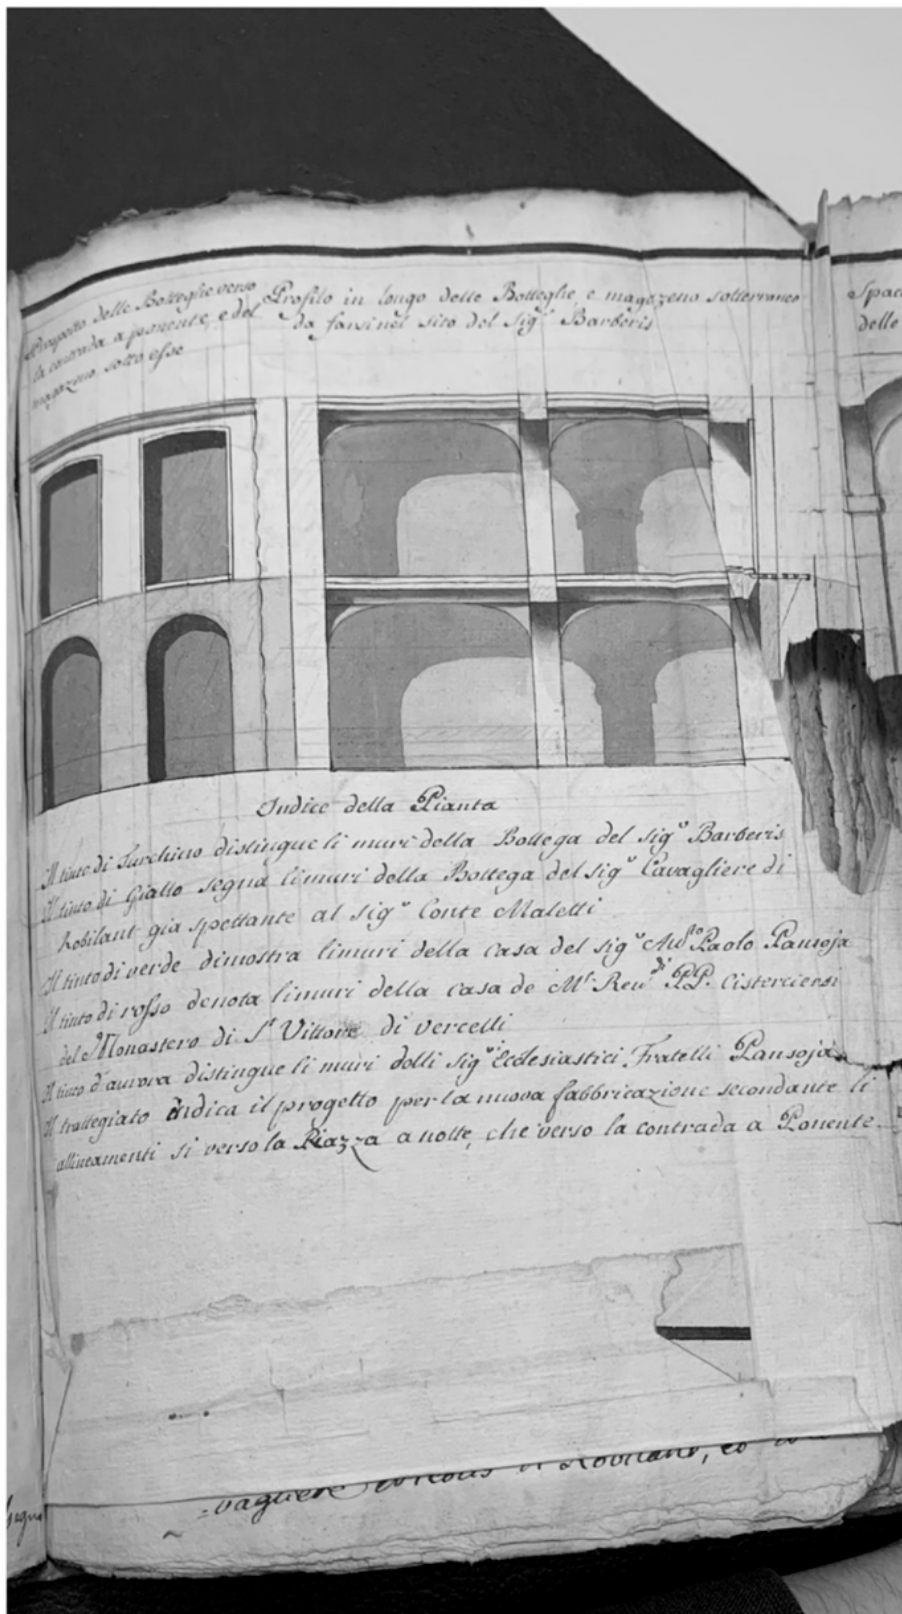 Prospetto delle Botteghe verso
la contrada a ponente, e del
magazino sotto esse
Profilo in longo delle Botteghe, e magazeno sotterraneo
da farsi nel sito del Sig.r Barberis
Spac
delle
Indice della Pianta
Il tinto di Turchino distingue li muri della Bottega del Sig.r Barberis
Il tinto di Giallo segna li muri della Bottega del Sig.r Cavagliere di
Robilant già spettante al Sig.r Conte Maletti
Il tinto di verde dimostra li muri della casa del Sig.r Paolo Pansoja
Il tinto di rosso denota li muri della casa de M.to Reu.di PP. Cisterciensi
del Monastero di S.t Vittore di Vercelli
Il tinto d'aurora distingue li muri delli Sig.ri Ecclesiastici Fratelli Pansoja
Il trattegiato indica il progetto per la nuova fabbricazione secondante li
allineamenti si verso la Piazza a notte, che verso la contrada a Ponente
=vagliere
segna